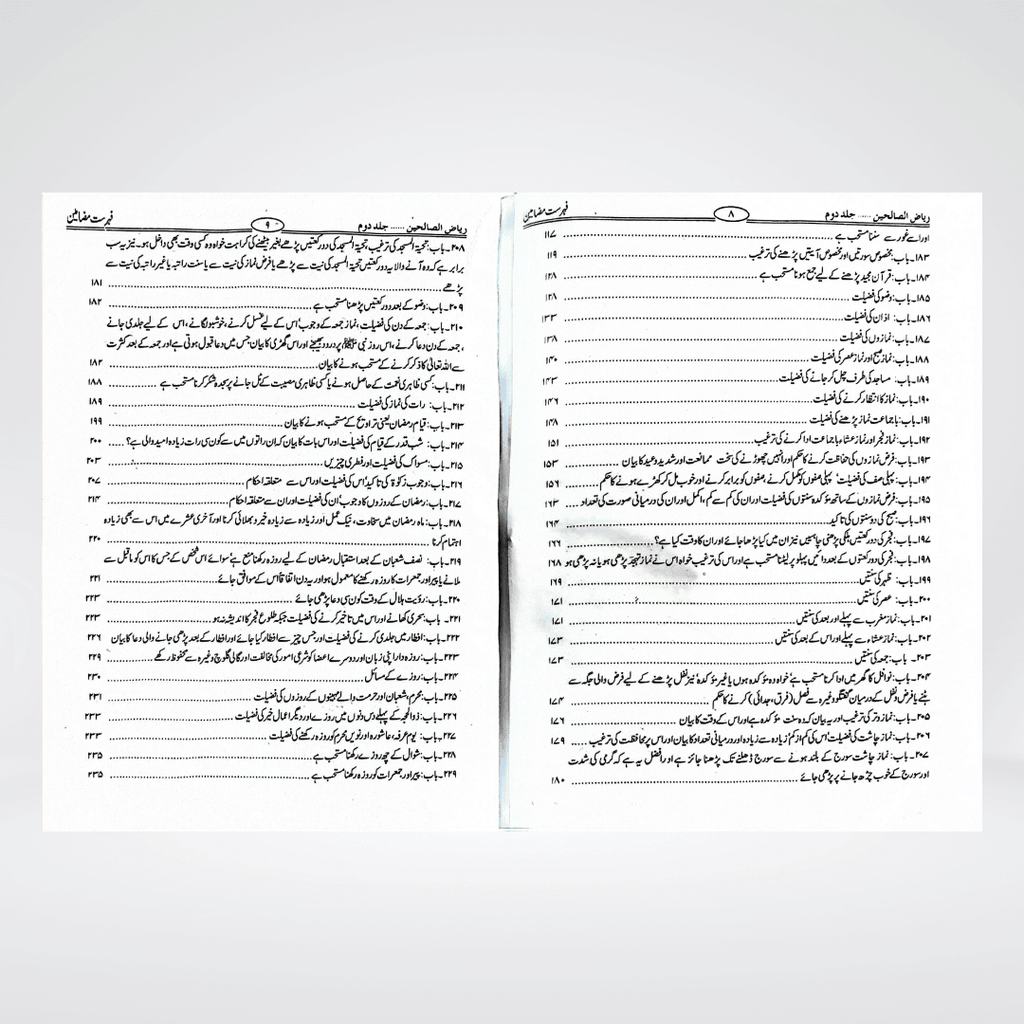 ریاض الصالحین ...... جلد دوم ۸ فہرست مضامین
اور اسے غور سے سننا مستحب ہے ۱۱۷
۱۸۳۔ باب: مخصوص سورتیں اور مخصوص آیتیں پڑھنے کی ترغیب ۱۱۹
۱۸۴۔ باب: قرآن مجید پڑھنے کے لیے جمع ہونا مستحب ہے ۱۲۸
۱۸۵۔ باب: وضو کی فضیلت ۱۲۸
۱۸۶۔ باب: اذان کی فضیلت ۱۳۳
۱۸۷۔ باب: نمازوں کی فضیلت ۱۳۸
۱۸۸۔ باب: نماز صبح اور نماز عصر کی فضیلت ۱۴۰
۱۸۹۔ باب: مساجد کی طرف چل کر جانے کی فضیلت ۱۴۳
۱۹۰۔ باب: نماز کا انتظار کرنے کی فضیلت ۱۴۶
۱۹۱۔ باب: باجماعت نماز پڑھنے کی فضیلت ۱۴۸
۱۹۲۔ باب: نماز فجر اور نماز عشاء باجماعت ادا کرنے کی ترغیب ۱۵۱
۱۹۳۔ باب: فرض نمازوں کی حفاظت کرنے کا حکم اور انہیں چھوڑنے کی سخت ممانعت اور شدید وعید کا بیان ۱۵۳
۱۹۴۔ باب: پہلی صف کی فضیلت، پہلی صفوں کو مکمل کرنے، صفوں کو برابر کرنے اور خوب مل کر کھڑے ہونے کا حکم ۱۵۶
۱۹۵۔ باب: فرض نمازوں کے ساتھ مؤکدہ سنتوں کی فضیلت اور ان کی کم سے کم، اکمل اور ان کی درمیانی صورت کی تعداد ۱۶۳
۱۹۶۔ باب: صبح کی دو سنتوں کی تاکید ۱۶۴
۱۹۷۔ باب: فجر کی دو رکعتیں ہلکی پڑھنی چاہئیں نیز ان میں کیا پڑھا جائے اور ان کا وقت کیا ہے؟ ۱۶۶
۱۹۸۔ باب: فجر کی دو رکعتوں کے بعد دائیں پہلو پر لیٹنا مستحب ہے اور اس کی ترغیب خواہ اس نے نماز تہجد پڑھی ہو یا نہ پڑھی ہو ۱۶۸
۱۹۹۔ باب: ظہر کی سنتیں ۱۶۹
۲۰۰۔ باب: عصر کی سنتیں ۱۷۱
۲۰۱۔ باب: نماز مغرب سے پہلے اور بعد کی سنتیں ۱۷۱
۲۰۲۔ باب: نماز عشاء سے پہلے اور اس کے بعد کی سنتیں ۱۷۳
۲۰۳۔ باب: جمعہ کی سنتیں ۱۷۳
۲۰۴۔ باب: نوافل کا گھر میں ادا کرنا مستحب ہے خواہ وہ مؤکدہ ہوں یا غیر مؤکدہ نیز نفل پڑھنے کے لیے فرض والی جگہ سے
ہٹنے یا فرض و نفل کے درمیان گفتگو وغیرہ سے فصل (فرق، جدائی) کرنے کا حکم ۱۷۴
۲۰۵۔ باب: نماز وتر کی ترغیب اور یہ بیان کہ وہ سنت مؤکدہ ہے اور اس کے وقت کا بیان ۱۷۶
۲۰۶۔ باب: نماز چاشت کی فضیلت، اس کی کم از کم، زیادہ سے زیادہ اور درمیانی تعداد کا بیان اور اس پر محافظت کی ترغیب ۱۷۹
۲۰۷۔ باب: نماز چاشت سورج کے بلند ہونے سے سورج ڈھلنے تک پڑھنا جائز ہے اور افضل یہ ہے کہ گرمی کی شدت
اور سورج کے خوب چڑھ جانے پر پڑھی جائے ۱۸۰
ریاض الصالحین ...... جلد دوم ۹ فہرست مضامین
۲۰۸۔ باب: تحیۃ المسجد کی ترغیب، تحیۃ المسجد کی دو رکعتیں پڑھے بغیر بیٹھنے کی کراہت خواہ وہ کسی وقت بھی داخل ہو۔ نیز یہ سب
برابر ہے کہ وہ آنے والا یہ دو رکعتیں تحیۃ المسجد کی نیت سے پڑھے یا فرض نماز کی نیت سے یا سنت راتبہ یا غیر راتبہ کی نیت سے
پڑھے ۱۸۱
۲۰۹۔ باب: وضو کے بعد دو رکعتیں پڑھنا مستحب ہے ۱۸۲
۲۱۰۔ باب: جمعہ کے دن کی فضیلت، نماز جمعہ کے وجوب، اس کے لیے غسل کرنے، خوشبو لگانے، اس کے لیے جلدی جانے
، جمعہ کے دن دعا کرنے، اس روز نبی ﷺ پر درود بھیجنے اور اس گھڑی کا بیان جس میں دعا قبول ہوتی ہے اور جمعہ کے بعد کثرت
سے اللہ تعالیٰ کا ذکر کرنے کے مستحب ہونے کا بیان ۱۸۲
۲۱۱۔ باب: کسی ظاہری نعمت کے حاصل ہونے یا کسی ظاہری مصیبت کے ٹل جانے پر سجدہ شکر کرنا مستحب ہے ۱۸۸
۲۱۲۔ باب: رات کی نماز کی فضیلت ۱۸۹
۲۱۳۔ باب: قیام رمضان یعنی تراویح کے مستحب ہونے کا بیان ۱۹۹
۲۱۴۔ باب: شب قدر کے قیام کی فضیلت اور اس بات کا بیان کہ ان راتوں میں سے کون سی رات زیادہ امید والی ہے؟ ۲۰۰
۲۱۵۔ باب: مسواک کی فضیلت اور فطری چیزیں ۲۰۳
۲۱۶۔ باب: وجوب زکوٰۃ کی تاکید، اس کی فضیلت اور اس سے متعلقہ احکام ۲۰۷
۲۱۷۔ باب: رمضان کے روزوں کا وجوب، ان کی فضیلت اور ان سے متعلقہ احکام ۲۱۴
۲۱۸۔ باب: ماہ رمضان میں سخاوت، نیک عمل اور زیادہ سے زیادہ خیر و بھلائی کرنا اور آخری عشرے میں اس سے بھی زیادہ
اہتمام کرنا ۲۲۰
۲۱۹۔ باب: نصف شعبان کے بعد استقبال رمضان کے لیے روزہ رکھنا منع ہے، سوائے اس شخص کے جس کا اس کو ماقبل سے
ملانے یا پیر اور جمعرات کا روزہ رکھنے کا معمول ہو اور یہ دن اتفاقاً اس کے موافق جائے ۲۲۱
۲۲۰۔ باب: رؤیت ہلال کے وقت کون سی دعا پڑھی جائے ۲۲۳
۲۲۱۔ باب: سحری کھانے اور اس میں تاخیر کرنے کی فضیلت جبکہ طلوع فجر کا اندیشہ نہ ہو ۲۲۳
۲۲۲۔ باب: افطار میں جلدی کرنے کی فضیلت اور جس چیز سے افطار کیا جائے اور افطار کے بعد پڑھی جانے والی دعا کا بیان ۲۲۶
۲۲۳۔ باب: روزہ دار اپنی زبان اور دوسرے اعضا کو شرعی امور کی مخالفت اور گالی گلوچ وغیرہ سے محفوظ رکھے ۲۲۹
۲۲۴۔ باب: روزے کے مسائل ۲۳۰
۲۲۵۔ باب: محرم، شعبان اور حرمت والے مہینوں کے روزوں کی فضیلت ۲۳۱
۲۲۶۔ باب: ذوالحجہ کے پہلے دس دنوں میں روزے اور دیگر اعمال خیر کی فضیلت ۲۳۳
۲۲۷۔ باب: یوم عرفہ، عاشورہ اور نویں محرم کو روزہ رکھنے کی فضیلت ۲۳۳
۲۲۸۔ باب: شوال کے چھ روزے رکھنا مستحب ہے ۲۳۵
۲۲۹۔ باب: پیر اور جمعرات کو روزہ رکھنا مستحب ہے ۲۳۵